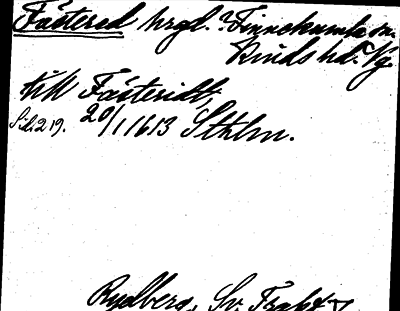 Fästered hrgl. ? Finnekumla sn.
Kinds hd. Vg.
till Fästeridt,
Sid. 219. 20/1 1613 Sthlm.
Rydberg, Sv. Trakt